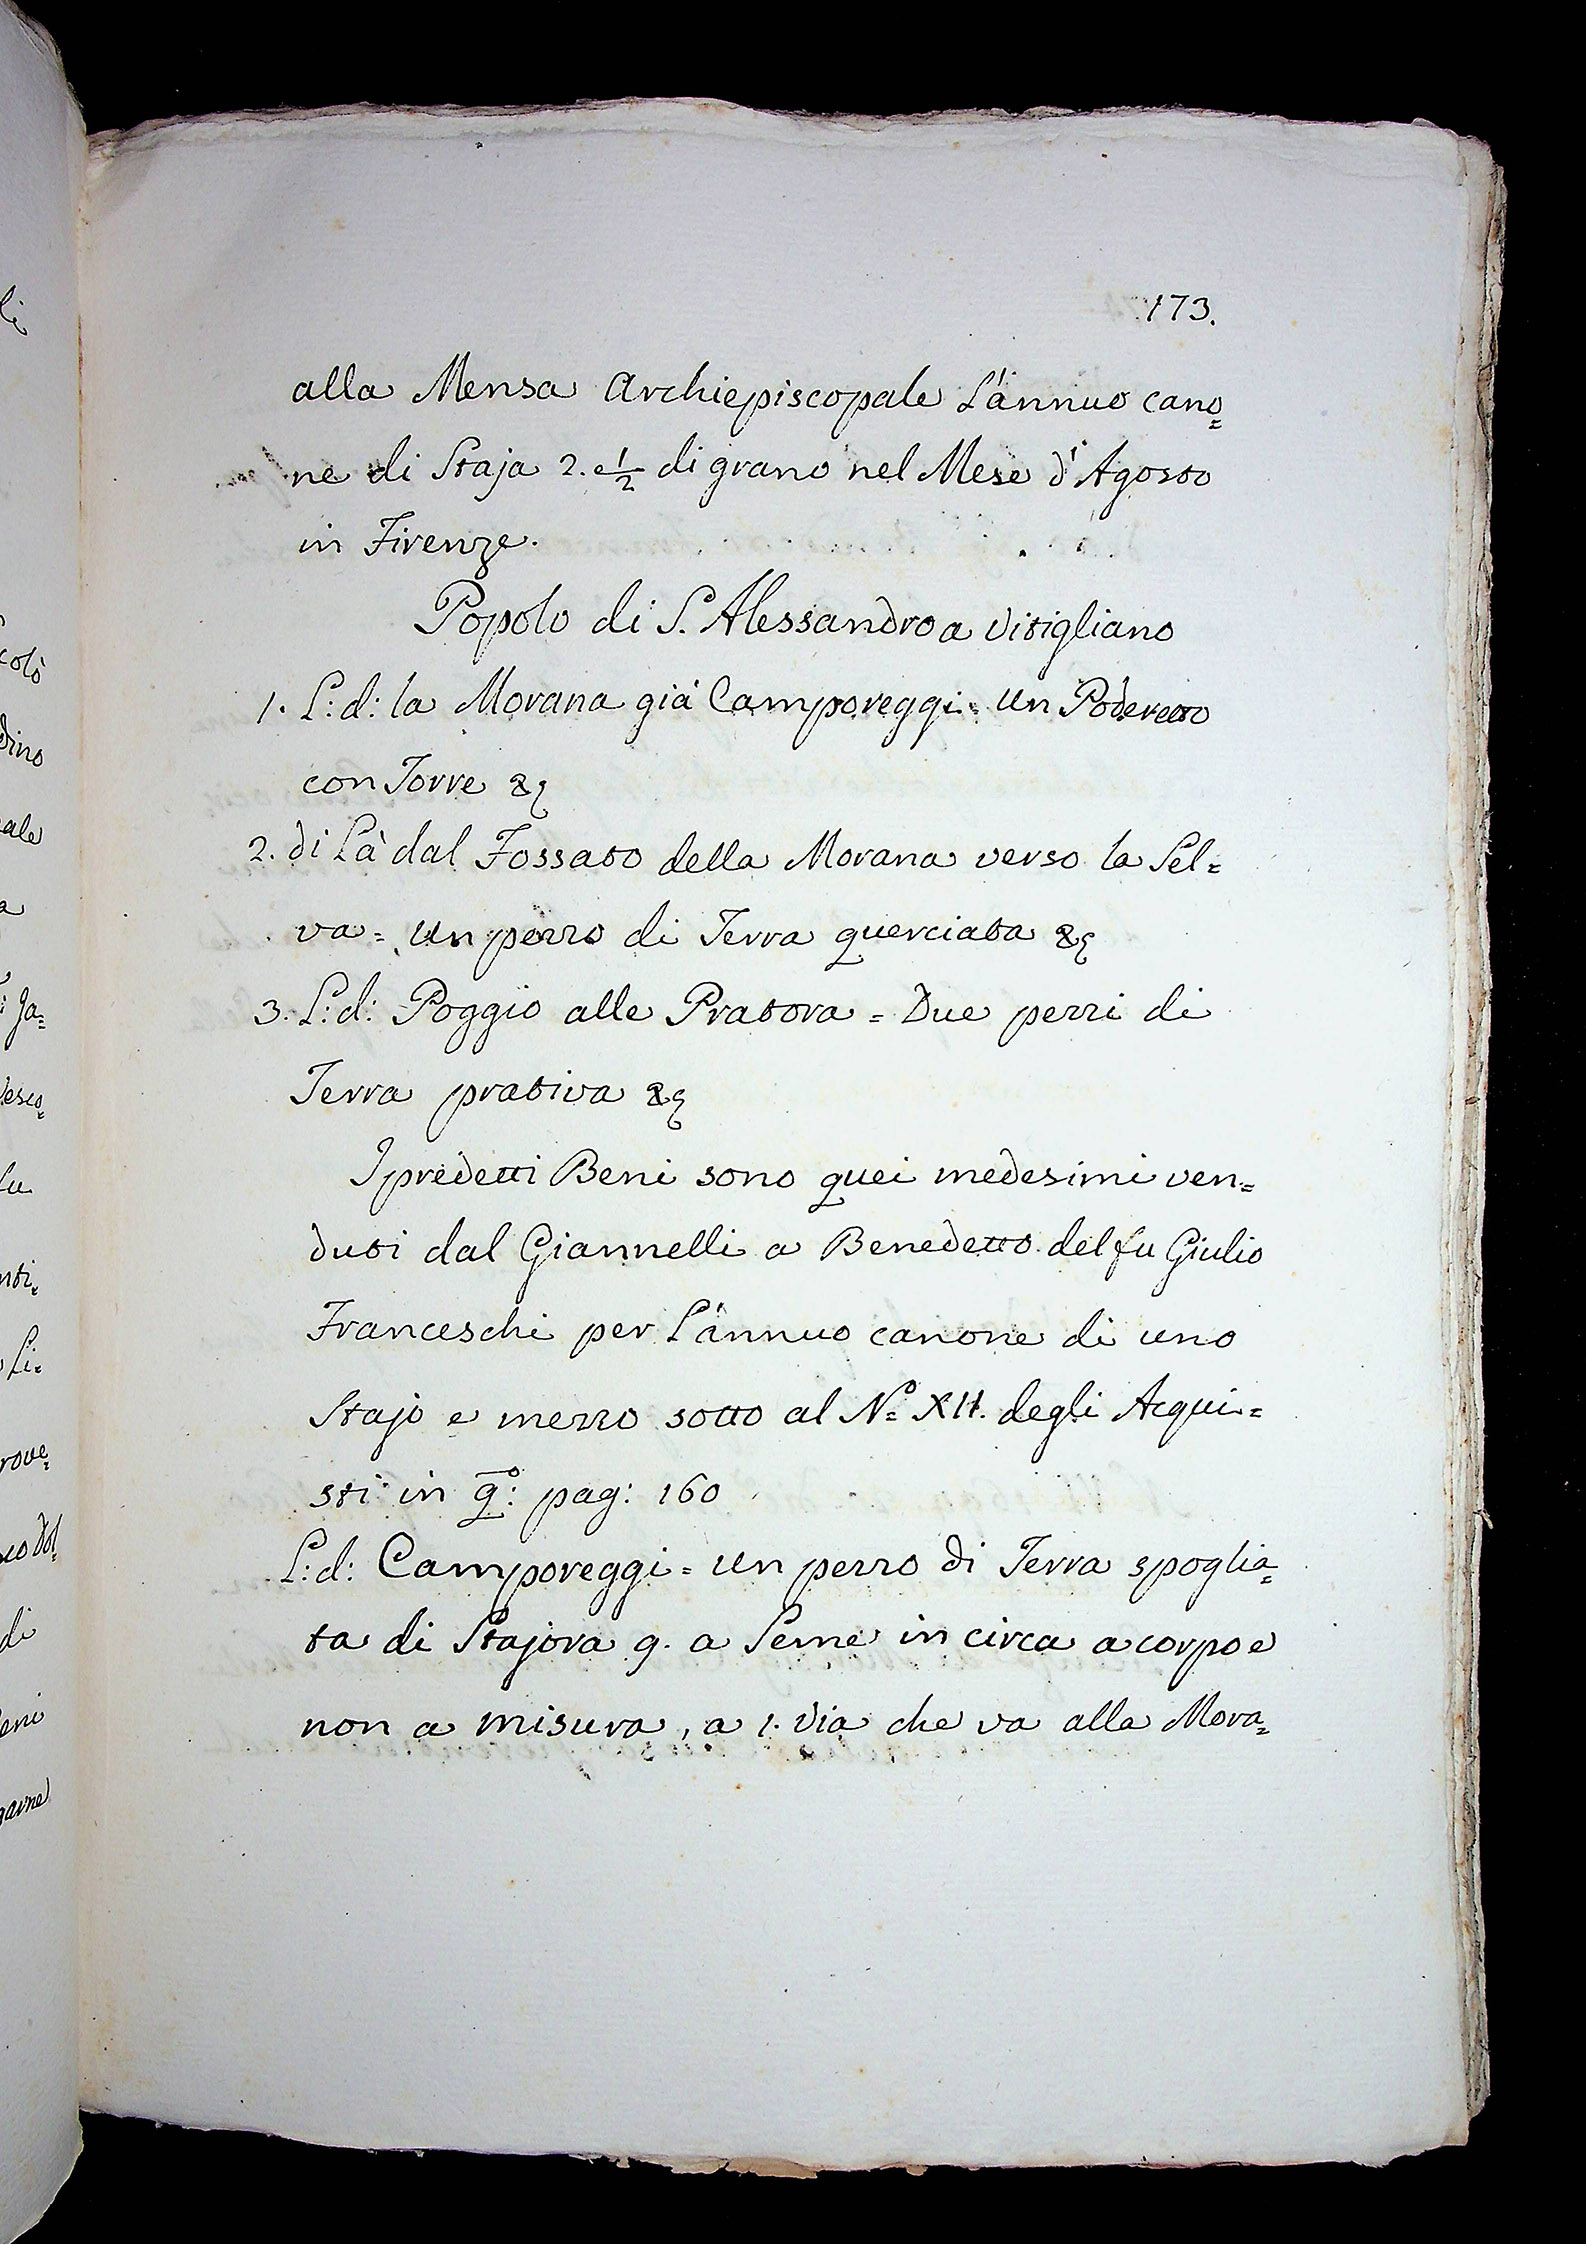 173.
alla Mensa Archiepiscopale L'annuo cano=
ne di Staja 2. e 1/2 di grano nel Mese d'Agosto
in Firenze.
Popolo di S. Alessandro a Vitigliano
1. L: d: la Morana già Camporeggi = Un Poderetto
con Torre &c
2. di Là dal Fossato della Morana verso la Sel=
va = Un pezzo di Terra querciata &c
3. L: d: Poggio alle Pratora = Due pezzi di
Terra prativa &c
I predetti Beni sono quei medesimi ven=
duti dal Giannelli a Benedetto del fu Giulio
Franceschi per L'annuo canone di uno
Stajo e mezzo sotto al N.º XII. degli Acqui=
sti in q.º: pag: 160
L: d: Camporeggi = Un pezzo di Terra spoglia=
ta di Stajora 9. a Seme in circa a corpo e
non a misura, a 1. Via che va alla Mora=